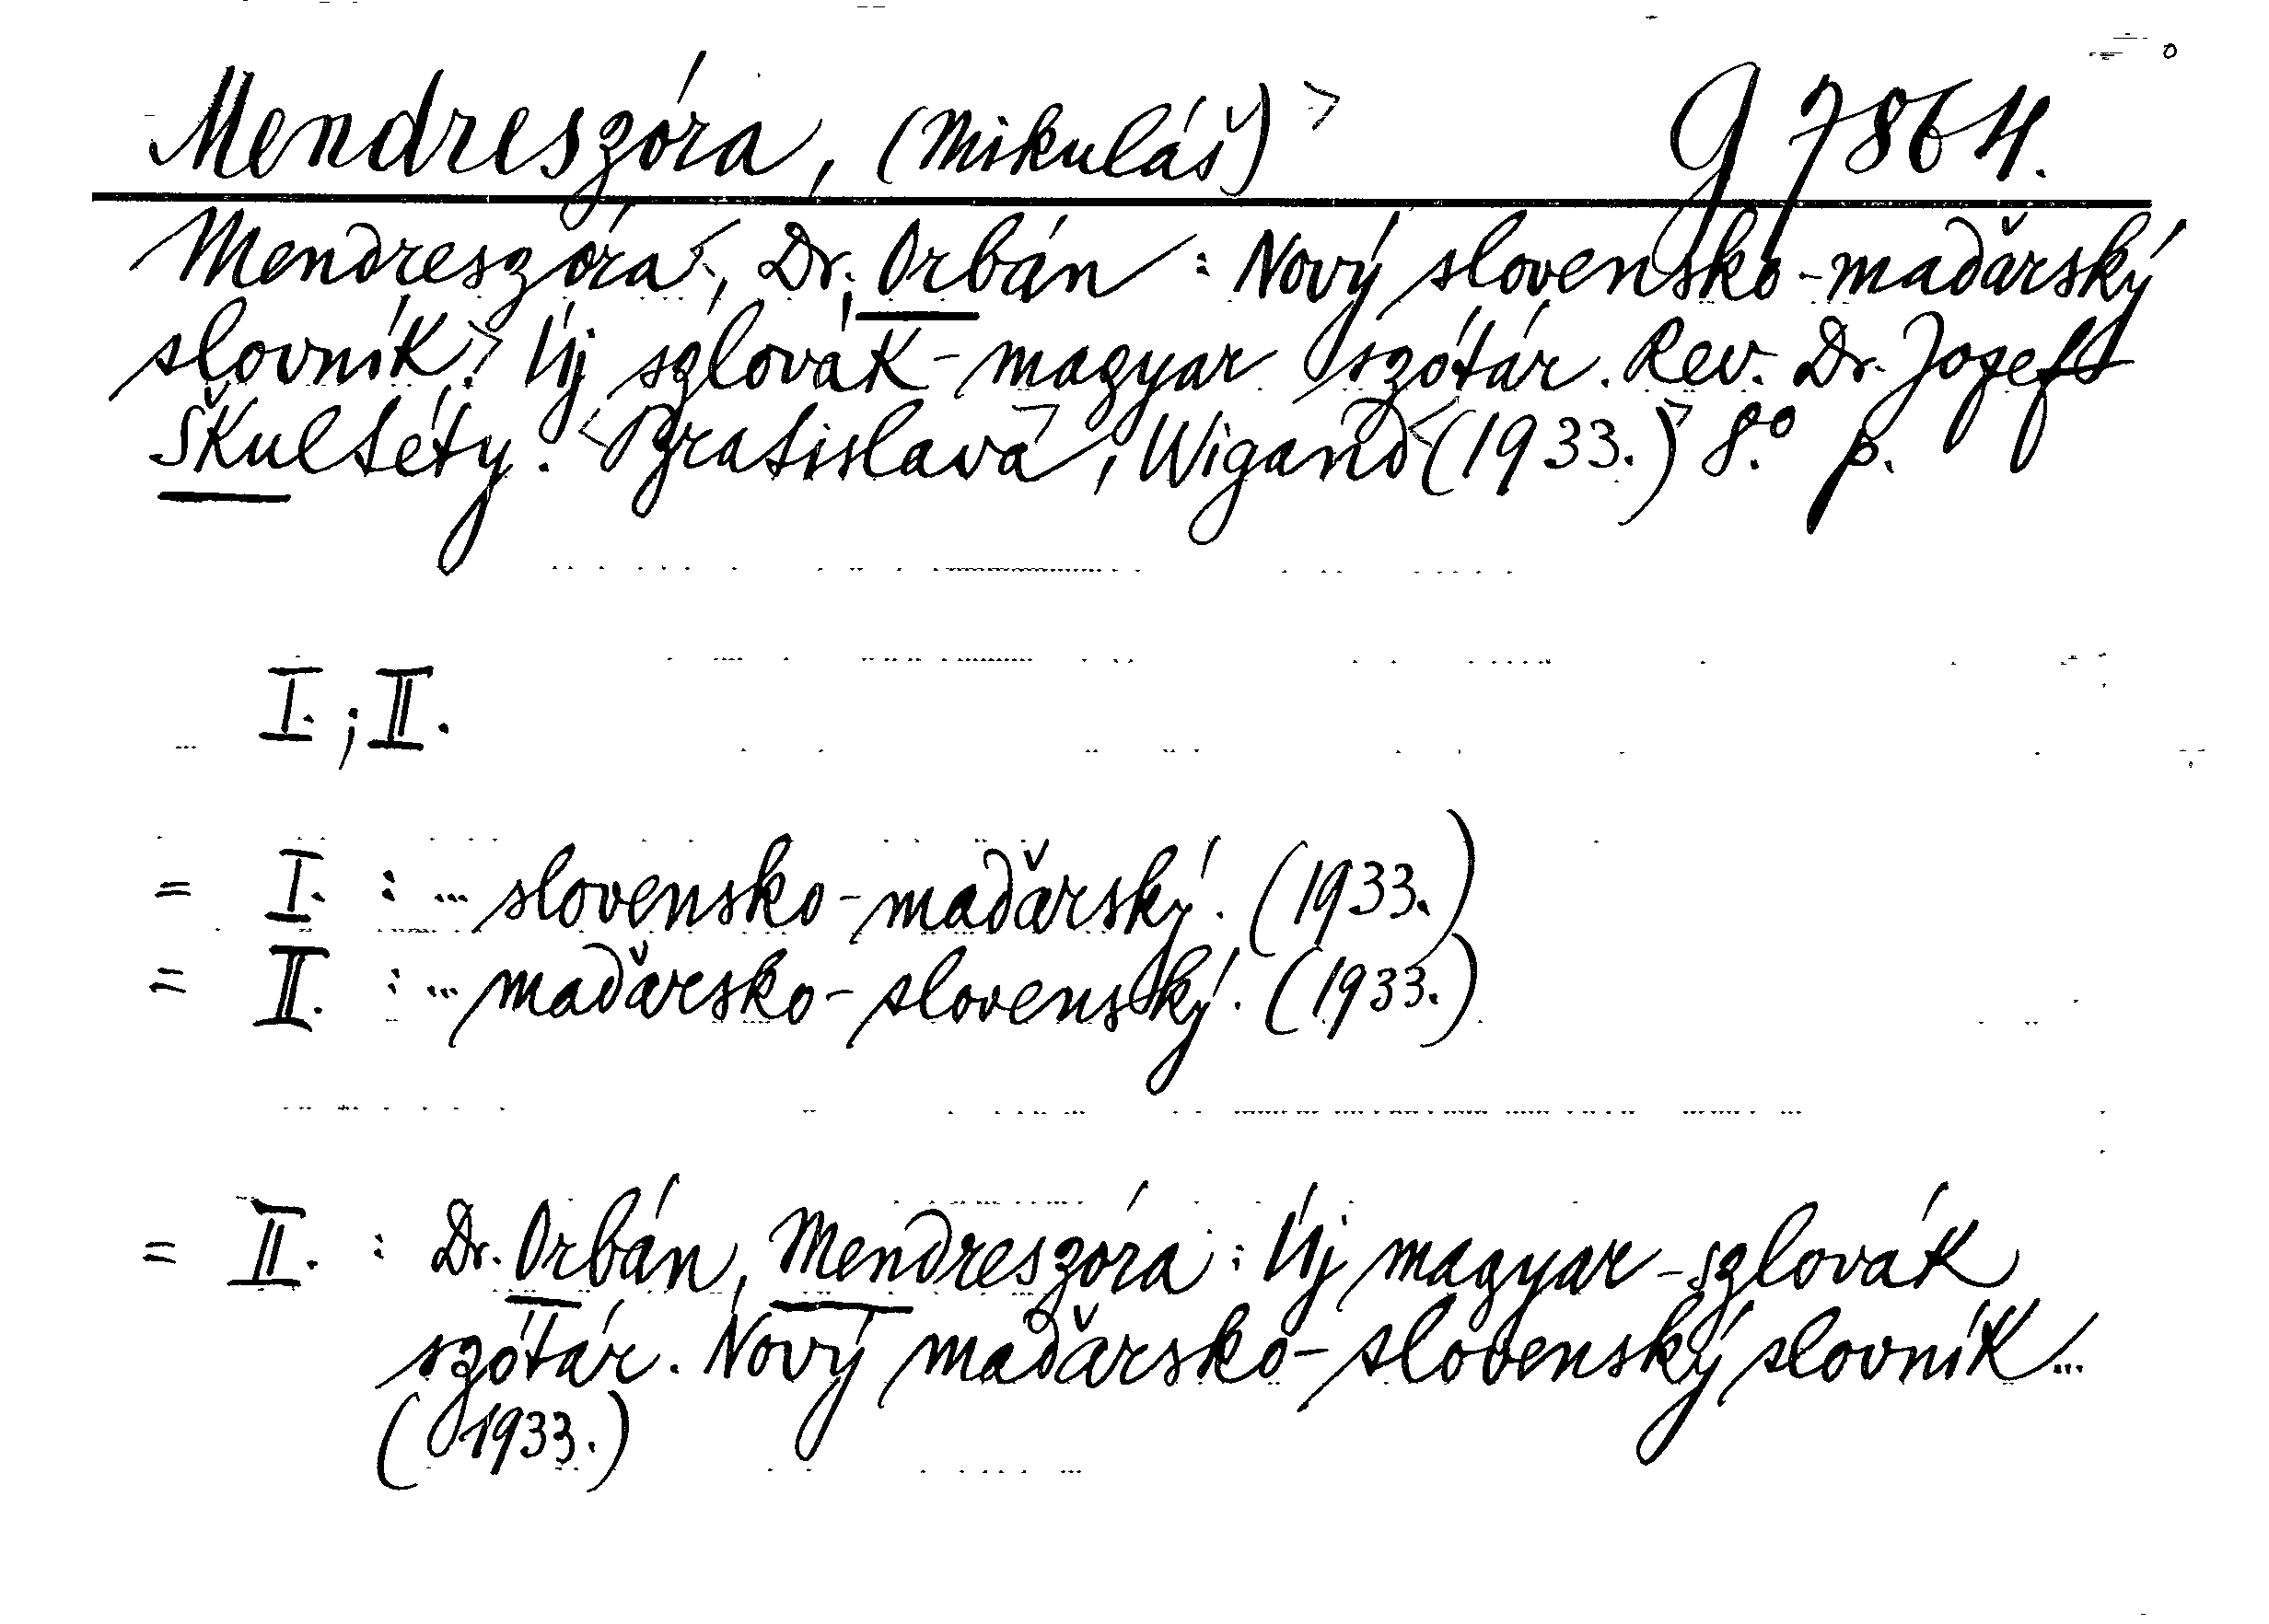 Mendreszóra, (Mikuláš) G 7864.
Mendreszóra, Dr. Orbán : Nový slovensko-maďarský
slovník. Új szlovák-magyar szótár. Rev. Dr. Jozef
Škultéty. Bratislava, Wigand (1933.) 8.° p.
I. ; II.
= I. : ... slovensko-maďarský. (1933.)
= II. : ... maďarsko-slovenský. (1933.)
= II. : Dr. Orbán, Mendreszóra : Új magyar-szlovák
szótár. Nový maďarsko-slovenský slovník...
(1933.)